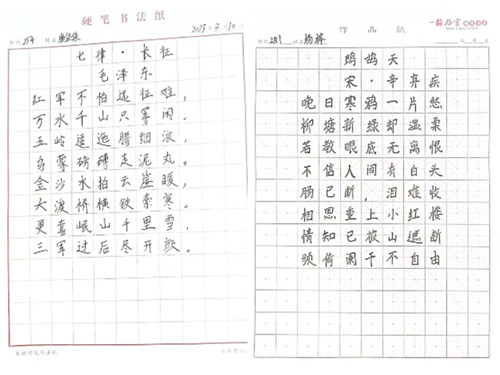 硬笔书法纸
254
七律·长征
毛泽东
红军不怕远征难，
万水千山只等闲。
五岭逶迤腾细浪，
乌蒙磅礴走泥丸。
金沙水拍云崖暖，
大渡桥横铁索寒。
更喜岷山千里雪，
三军过后尽开颜。
作品纸
281
鹧鸪天
宋·辛弃疾
晚日寒鸦一片愁
柳塘新绿却温柔
若教眼底无离恨
不信人间有白头
肠已断，泪难收
相思重上小红楼
情知已被山遮断
频倚阑干不自由